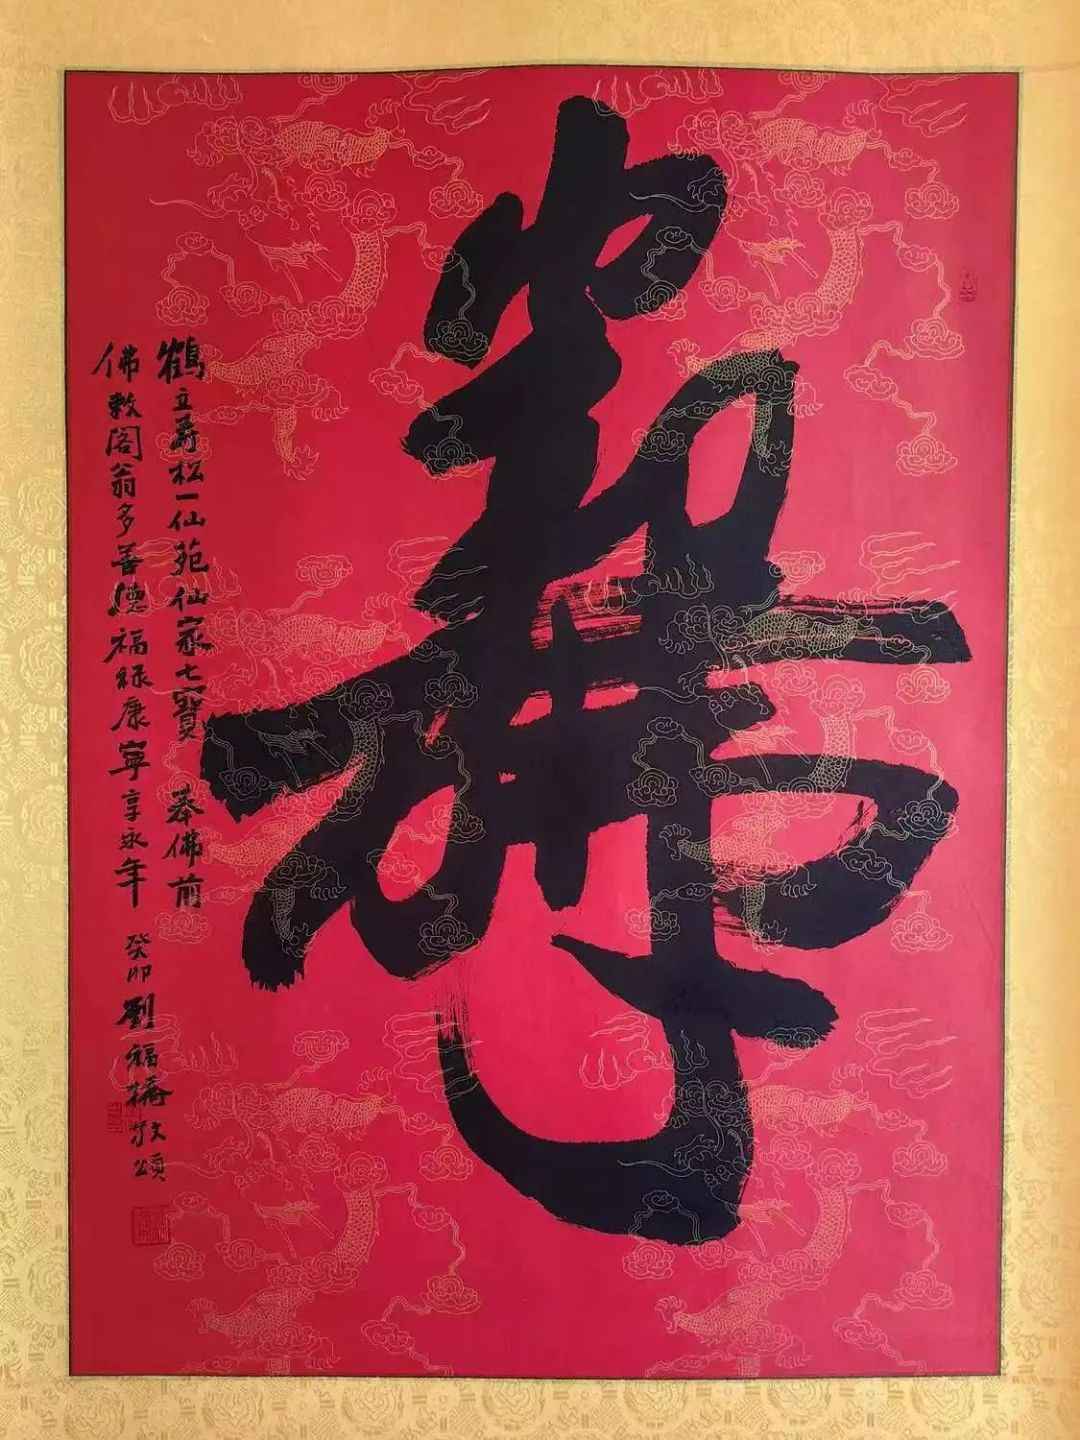 鶴立寿松一仙苑仙家七寶 奉佛前
佛教阁翁多善德福禄康寧享永年 癸卯劉福 敬頌